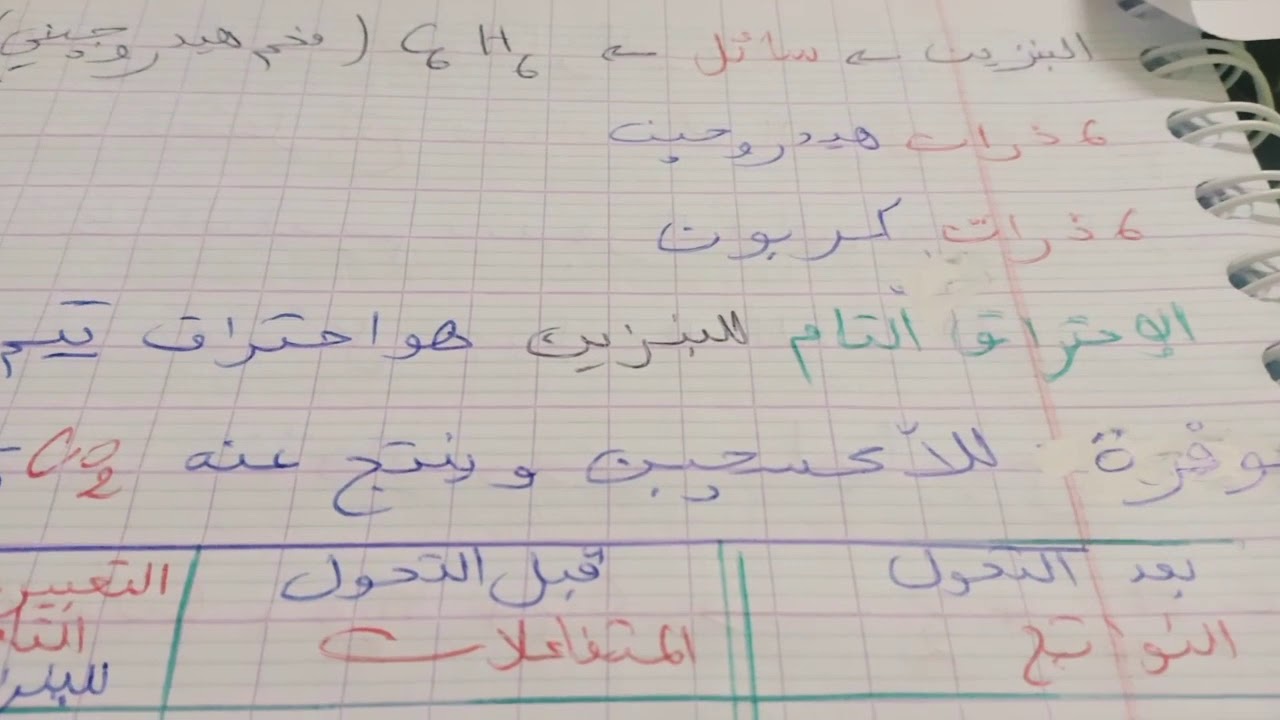 البنزين ← سائل ← C6H6 (فحم هيدروجيني)
6 ذرات هيدروجين
6 ذرات كربون
الإحتراق التام للبنزين هو احتراق يتم
بوفرة للأكسجين وينتج عنه CO2
بعد التحول قبل التحول التعبير
النواتج المتفاعلات